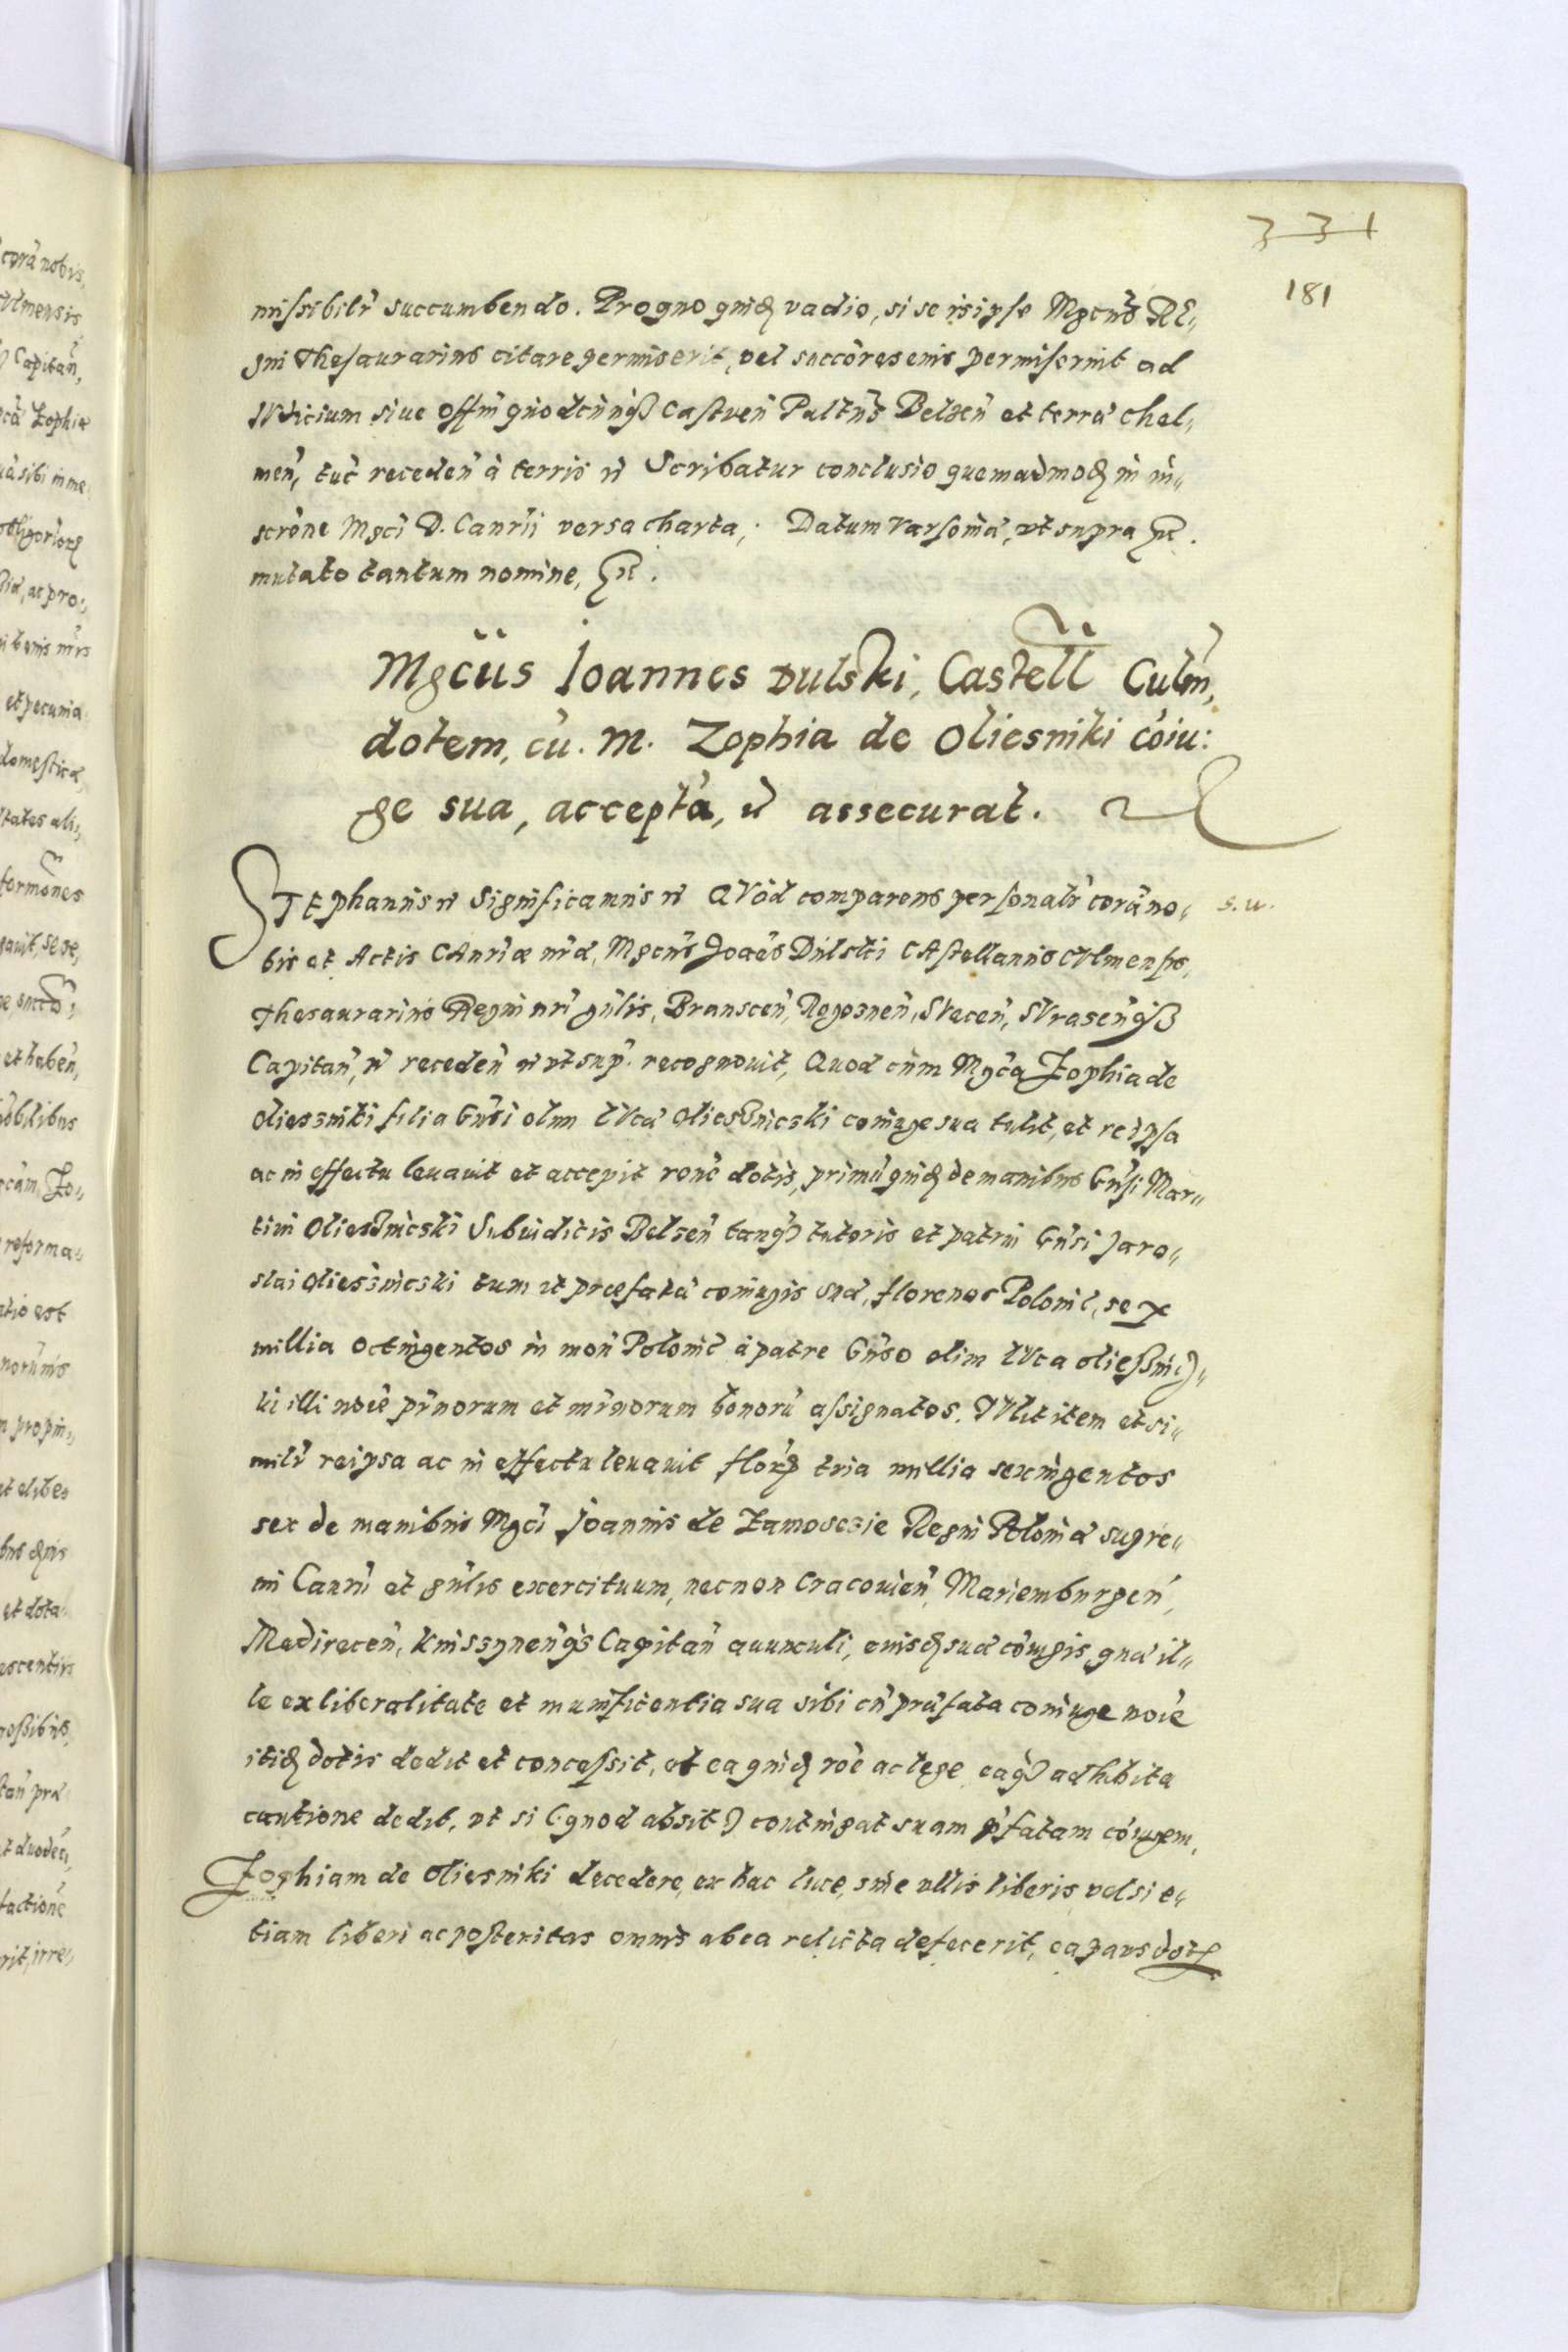 331
181
missibilr̃ succumbendo. Pro quo quidẽ vadio, si se is ipse Mgcus RE,
gni Thesaurarius citare permiserit, vel succõres eius permiserint ad
IVdicium siue offm̃ quodcunq3 Castreñ Paltus Belzeñ et terræ Chel,
meñ, tuc recedeñ à terris etc̃ Scribatur conclusio quemadmodũ in in„
scrõne Mgci D. Canrii versa charta; Datum Varsoviæ, vt supra etc̃.
mutato tantum nomine, etc̃.
Mgcus Joannes Dulski, Castell Culm̃,
dotem, cũ. M. Zophia de Oliesniki cõiu:
ge sua, acceptã, etc̃ assecurat.
STEphanus etc̃ Significamus etc̃ QVòd comparens personalr̃ corã no„
s. u.
bis et Actis CAnriæ nr̃æ, Mgcus Joães Dulski CAstellanus CVlmensis,
Thesaurarius Regni nr̃i gñlis, Bransceñ, Rogozneñ, SVeceñ, SVraseñq3
Capitañ, etc̃ recedeñ etc̃ vt sup. recognouit, Quod cùm Mgca Zophia de
Oliesniki filia Gñsi olim LVcæ Oliesniczki coniuge sua tulit, et reipsa
ac in effectu leuauit et accepit rõne dotis, primũ quidẽ de manibus Gñsi Mar„
tini Oliesnicski Subiudicis Belzeñ tanq̃ tutoris et patrui Gñsi Jaro„
slai Oliesnicski tum et præfatæ coniugis suæ, florenos Polonic̃, sex
millia octingentos in moñ Polonic̃ à patre Gñso olim LVca Oliesnic„
ki illi noĩe pr̃norum et mr̃norum bonorũ assignatos. TVlit item et si„
milr̃ reipsa ac in effectu leuauit florẽ tria millia sexingentos
sex de manibus Mgci Joannis de Zamosczie Regni Poloniæ supre„
mi Canrii et gñlis exercituum, necnon Cracouieñ, Mariemburgeñ,
Medireceñ, Knissyneñq3 Capitañ auunculi, eiusdẽ suæ cõiugis, quæ il„
le ex liberalitate et munificentia sua sibi cũ præfata coniuge noĩe
itidẽ dotis dedit et concessit, et ea quidẽ rõe ac lege eaq3 adhibita
cautione dedit, vt si (quod absit) contingat suam p̃fatam cõiugem,
Zophiam de Oliesniki decedere, ex hac luce, sine vllis liberis, vel si e„
tiam liberi ac posteritas omnis ab ea relicta defecerit, ea pars dotis